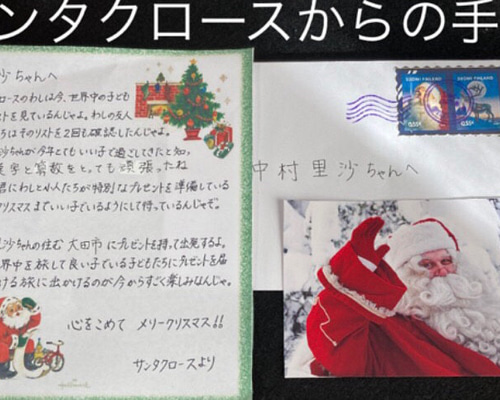 ンタクロースからの手
沙ちゃんへ
ロースのわしは今、世界中の子ども
ストを見ているんじゃ。わしの友人
ちはそのリストを2回も確認したんじゃよ。
沙ちゃんが今年とてもいい子で過ごしてきたと知
漢字と算数をとても頑張ったね
君にわしと小人たちが特別なプレゼントを準備している
クリスマスまでいい子でいるようにして待っているんじゃぞ。
沙ちゃんの住む 大田市 にプレゼントを持って出発するよ。
世界中を旅して良い子でいる子どもたちにプレゼントを届
ける旅に出かけるのが今からすごく楽しみなんじゃ。
心をこめて メリークリスマス!!
サンタクロースより
Hallmark
中村里沙ちゃんへ
SUOMI FINLAND
SUOMI FINLAND
0,55€
0,55€